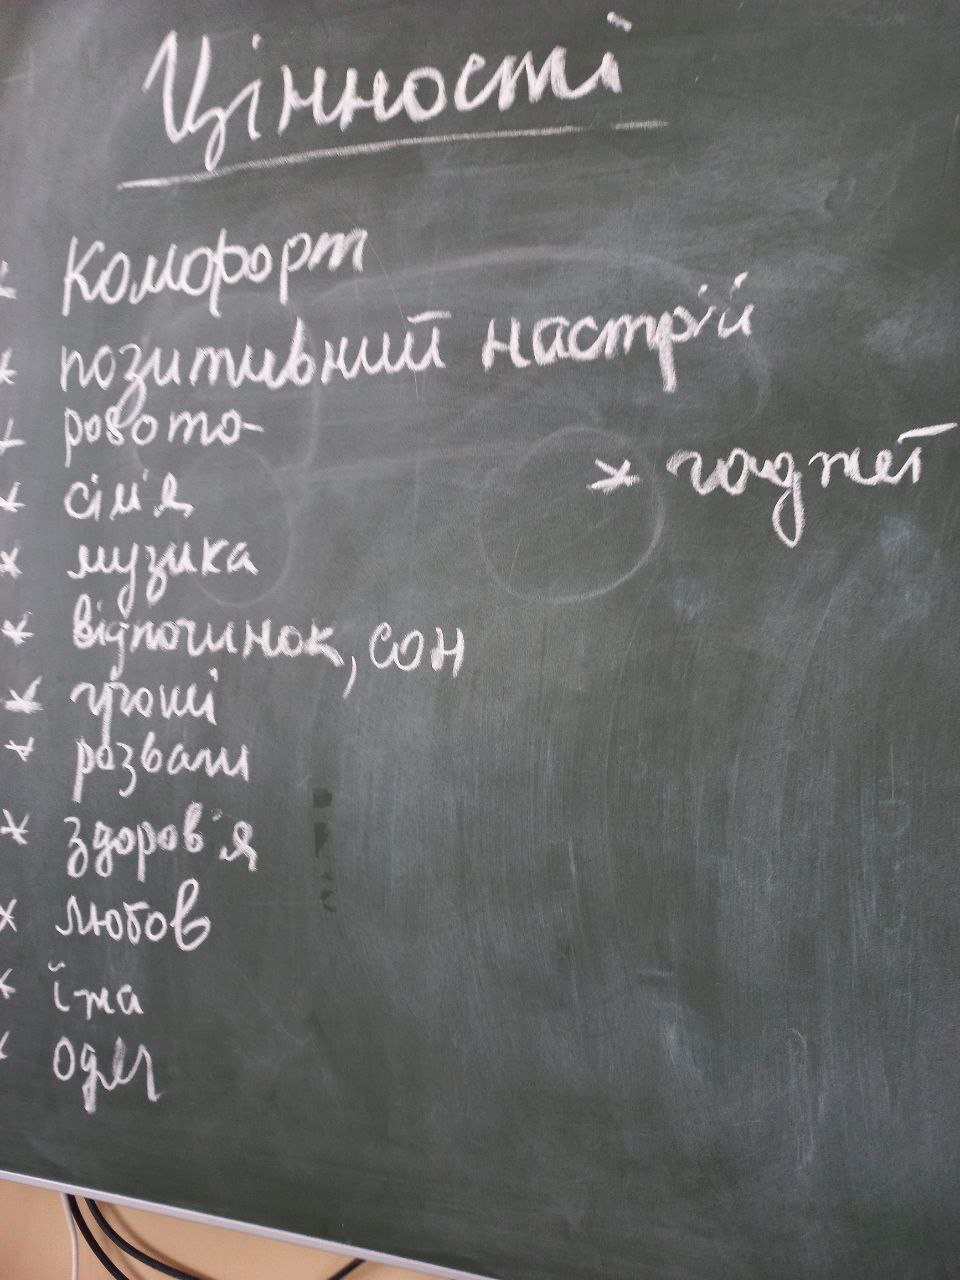 Цінності
* комфорт
* позитивний настрій
* робота
* сім'я
* музика
* відпочинок, сон
* гроші
* розваги
* здоров'я
* любов
* їжа
* одяг
* гаджет